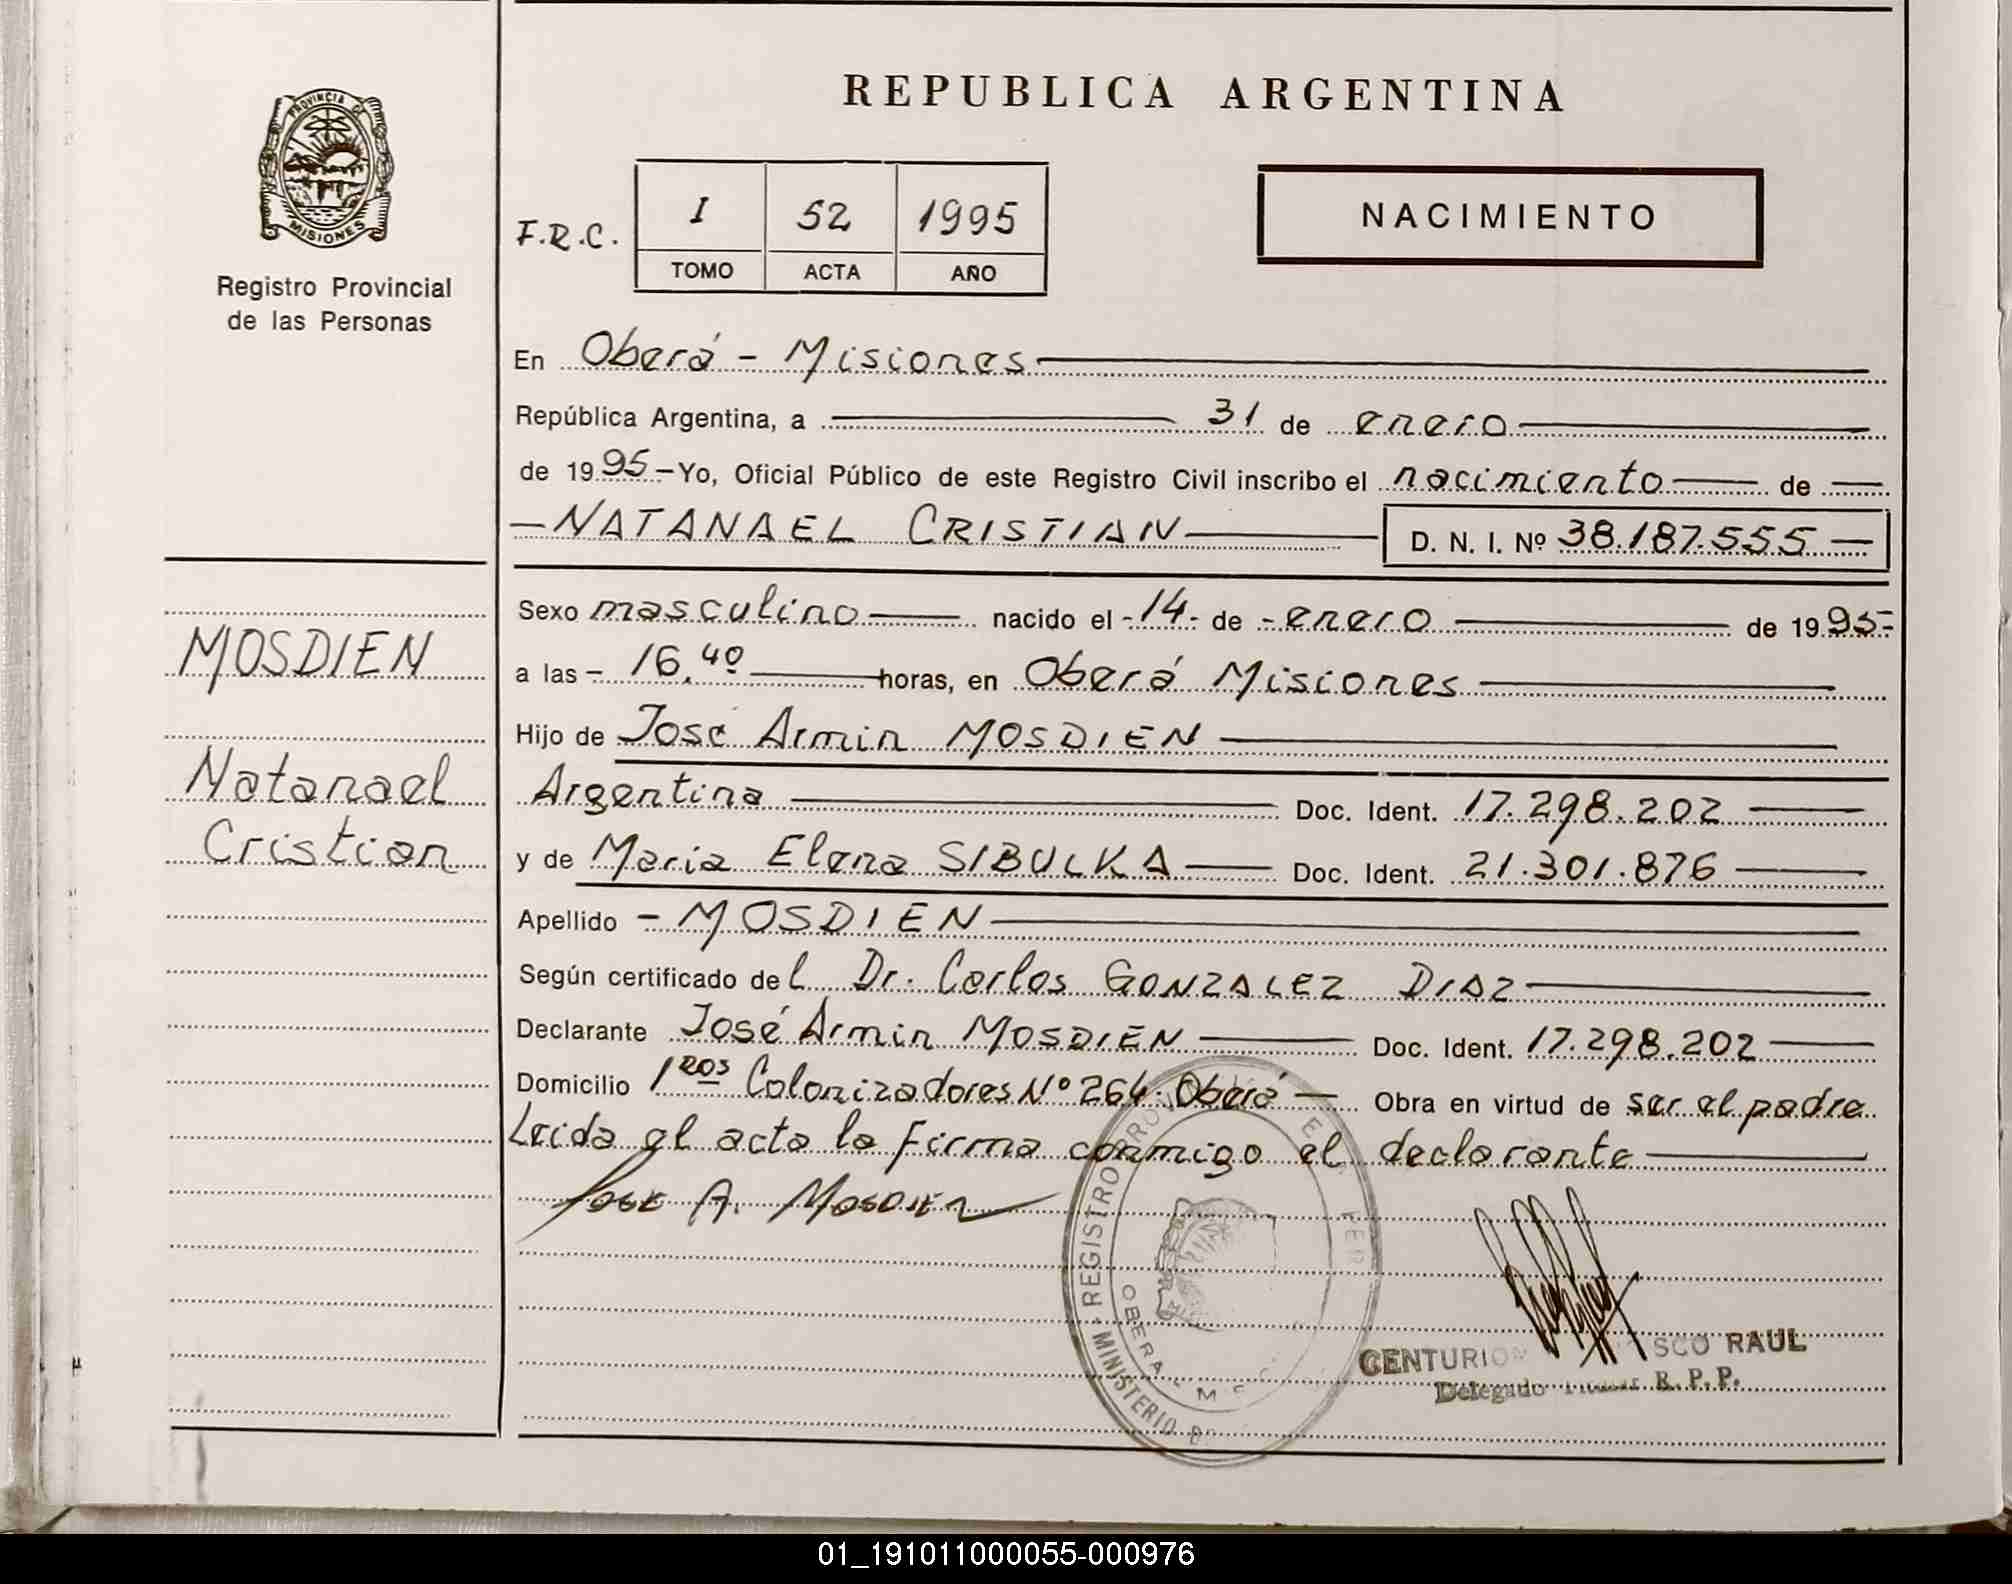 REPUBLICA ARGENTINA
PROVINCIA DE
MISIONES
Registro Provincial
de las Personas
F.R.C.
I 52 1995
TOMO ACTA AÑO
NACIMIENTO
En Oberá - Misiones
República Argentina, a 31 de enero
de 1995 - Yo, Oficial Público de este Registro Civil inscribo el nacimiento de
- NATANAEL CRISTIAN D. N. I. Nº 38.187.555 -
Sexo masculino nacido el - 14 - de - enero de 1995 -
a las - 16,40 horas, en Oberá Misiones
Hijo de José Armin MOSDIEN
Argentina Doc. Ident. 17.298.202
y de Maria Elena SIBULKA Doc. Ident. 21.301.876
Apellido - MOSDIEN
Según certificado del Dr. Carlos GONZALEZ DIAZ
Declarante José Armin MOSDIEN Doc. Ident. 17.298.202
Domicilio 1ros Colonizadores Nº 264 - Oberá - Obra en virtud de ser el padre
Leida el acta la firma conmigo el declarante
JOSE A. MOSDIEN
MOSDIEN
Natanael
Cristian
REGISTRO
OBERA
MINISTERIO
CENTURION RAUL
Delegado R. P. P.
01_191011000055-000976